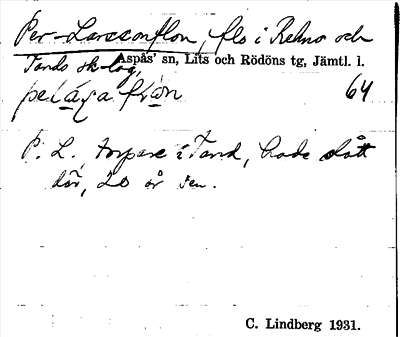 Per-Larssonflon, flo i Rekno och
Tands sk-lag,
Aspås' sn, Lits och Rödöns tg, Jämtl. l.
64
P. L., torpare i Tand, hade slått
där, 20 år sen.
C. Lindberg 1931.